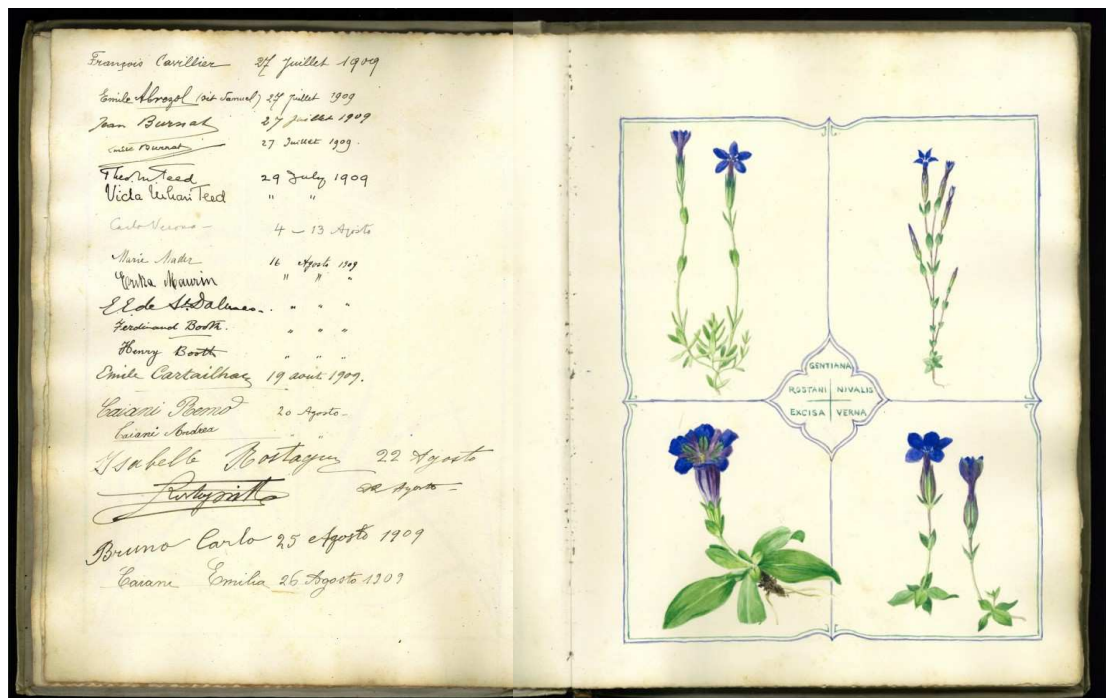 François Cavillier 27 Juillet 1909
Emile Abrezol (dit Samuel) 27 Juillet 1909
Jean Burnat 27 Juillet 1909
Burnat 27 Juillet 1909.
Teed 29 July 1909
Vida Teed " "
Carlo Verona - 4 – 13 Agosto
Marie Mader 16 Agosto 1909
Erika Maurin " " "
E E de St Dalmas. " " "
Ferdinand Booth. " " "
Henry Booth " " "
Emile Cartailhac 19 août 1909.
Caiani Remo 20 Agosto -
Caiani Andrea " "
Isabelle 22 Agosto
22 Agosto -
Bruno Carlo 25 Agosto 1909
Caiani Emilia 26 Agosto 1909
GENTIANA
ROSTANI NIVALIS
EXCISA VERNA